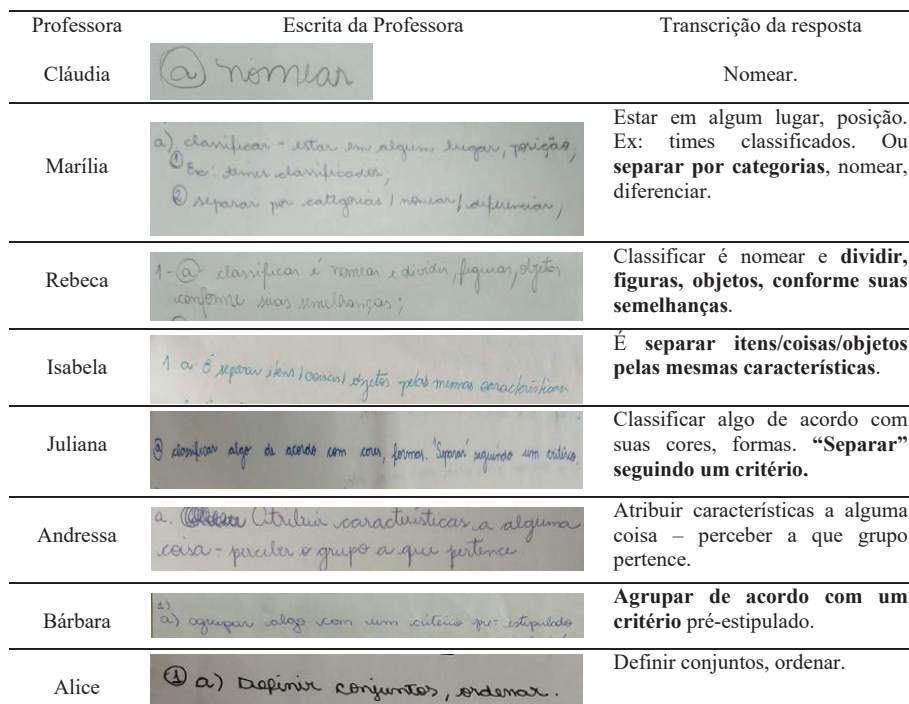 Professora Escrita da Professora Transcrição da resposta
Cláudia
a nomear
Nomear.
Marília
a) classificar - estar em algum lugar, posição;
① Ex: times classificados;
② separar por categorias / nomear / diferenciar;
Estar em algum lugar, posição.
Ex: times classificados. Ou
separar por categorias, nomear,
diferenciar.
Rebeca
1- a - classificar é nomear e dividir, figuras, objetos
conforme suas semelhanças;
Classificar é nomear e dividir,
figuras, objetos, conforme suas
semelhanças.
Isabela
1 a É separar itens/coisas/objetos pelas mesmas características
É separar itens/coisas/objetos
pelas mesmas características.
Juliana
a classificar algo de acordo com cores, formas. "Separar" seguindo um critério.
Classificar algo de acordo com
suas cores, formas. “Separar”
seguindo um critério.
Andressa
a. Atribuir características a alguma
coisa - perceber o grupo a que pertence
Atribuir características a alguma
coisa – perceber a que grupo
pertence.
Bárbara
1)
a) agrupar algo com um critério pré-estipulado
Agrupar de acordo com um
critério pré-estipulado.
Alice
① a) Definir conjuntos, ordenar.
Definir conjuntos, ordenar.